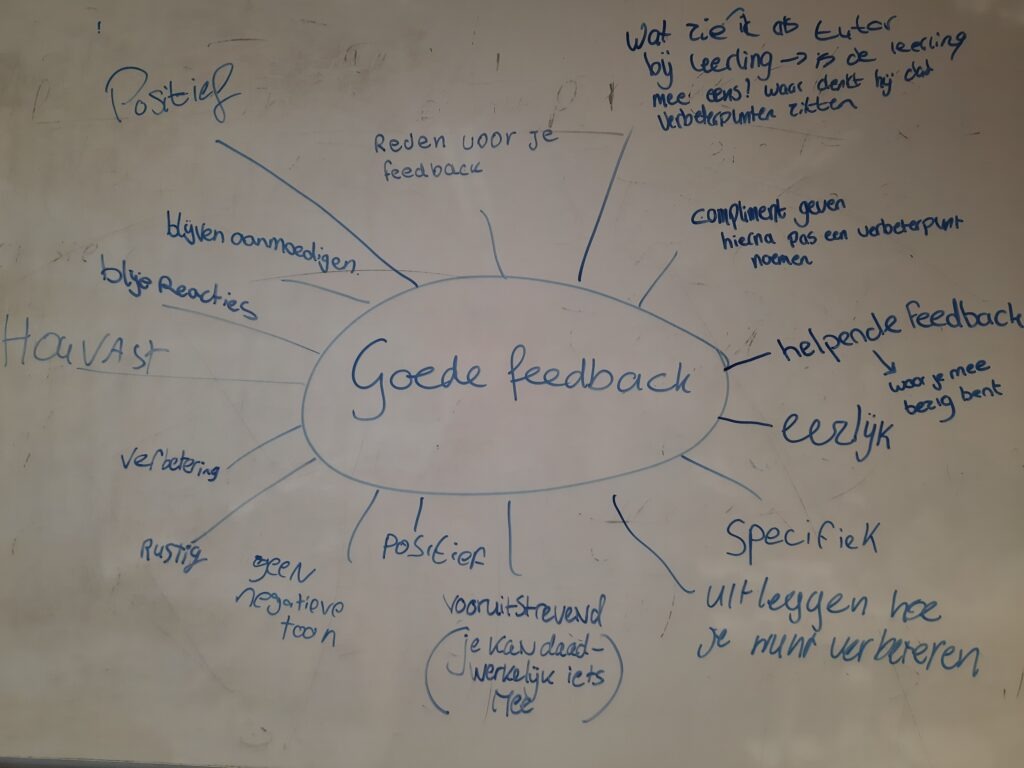 Positief
Reden voor je
feedback
Wat zie ik als tutor
bij leerling → is de leerling
mee eens! waar denkt hij dat
verbeterpunten zitten
compliment geven
hierna pas een verbeterpunt
noemen
blijven aanmoedigen
blije Reacties
HouVAst
Goede feedback
helpende feedback
waar je mee
bezig bent
eerlijk
Verbetering
Rustig
geen
negatieve
toon
Positief
vooruitstrevend
(je kan daad-
werkelijk iets
mee)
Specifiek
uitleggen hoe
je verbeteren